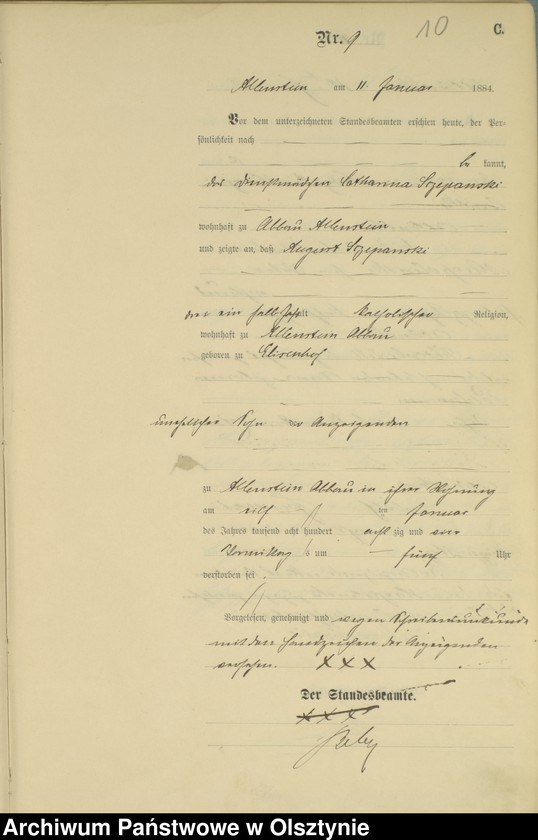 10
C.
Nr. 9
Allenstein am 11 Januar 1884.
Vor dem unterzeichneten Standesbeamten erschien heute, der Per-
sönlichkeit nach
be kannt,
das Dienstmädchen Catharina Szepanski
wohnhaft zu Abbau Allenstein
und zeigte an, daß August Szepanski
drei ein halb Jahr alt katholischer Religion,
wohnhaft zu Allenstein Abbau
geboren zu Elisenhof
unehelicher Sohn der Anzeigenden
zu Allenstein Abbau in ihrer Wohnung
am eilf ten Januar
des Jahres tausend acht hundert acht zig und vier
Vormittags um fünf Uhr
verstorben sei.
Vorgelesen, genehmigt und wegen Schreibensunkunde
mit dem Handzeichen der Anzeigenden
versehen. XXX
Der Standesbeamte.
XXX
Archiwum Państwowe w Olsztynie